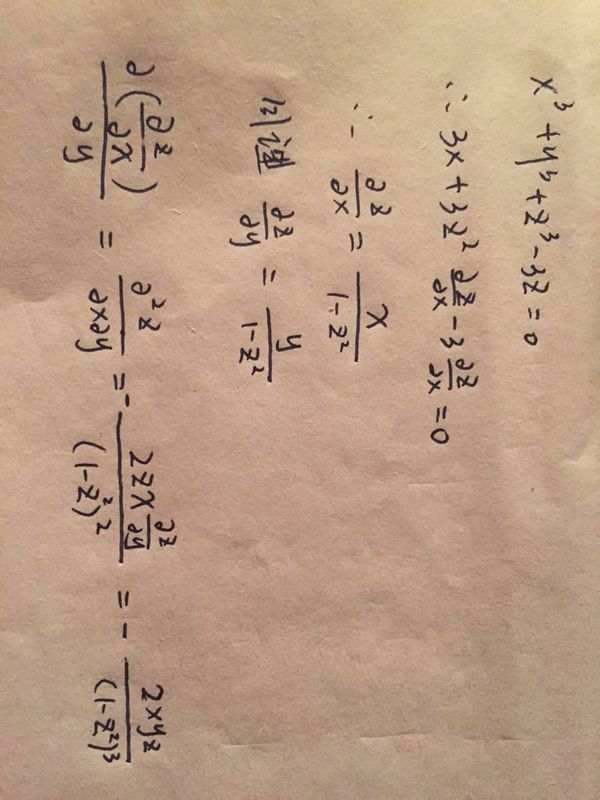 x³ + y³ + z³ - 3z = 0
∴ 3x + 3z² ∂z/∂x - 3 ∂z/∂x = 0
∴ ∂z/∂x = x/(1-z²)
同理 ∂z/∂y = y/(1-z²)
∂(∂z/∂x)/∂y = ∂²z/∂x∂y = - 2zx ∂z/∂y/(1-z²)² = - 2xyz/(1-z²)³